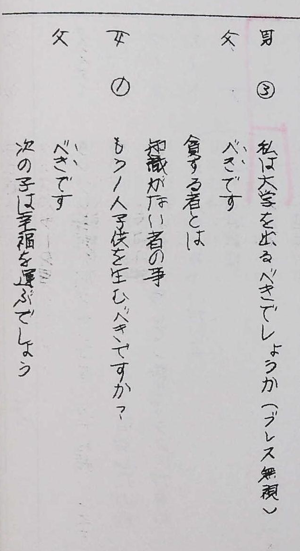 男 ③ 私は大学を出るべきでしょうか(ブレス無視)
父 べきです
貧する者とは
知識がない者の事
女 ① もう1人子供を生むべきですか?
父 べきです
次の子は幸福を運ぶでしょう